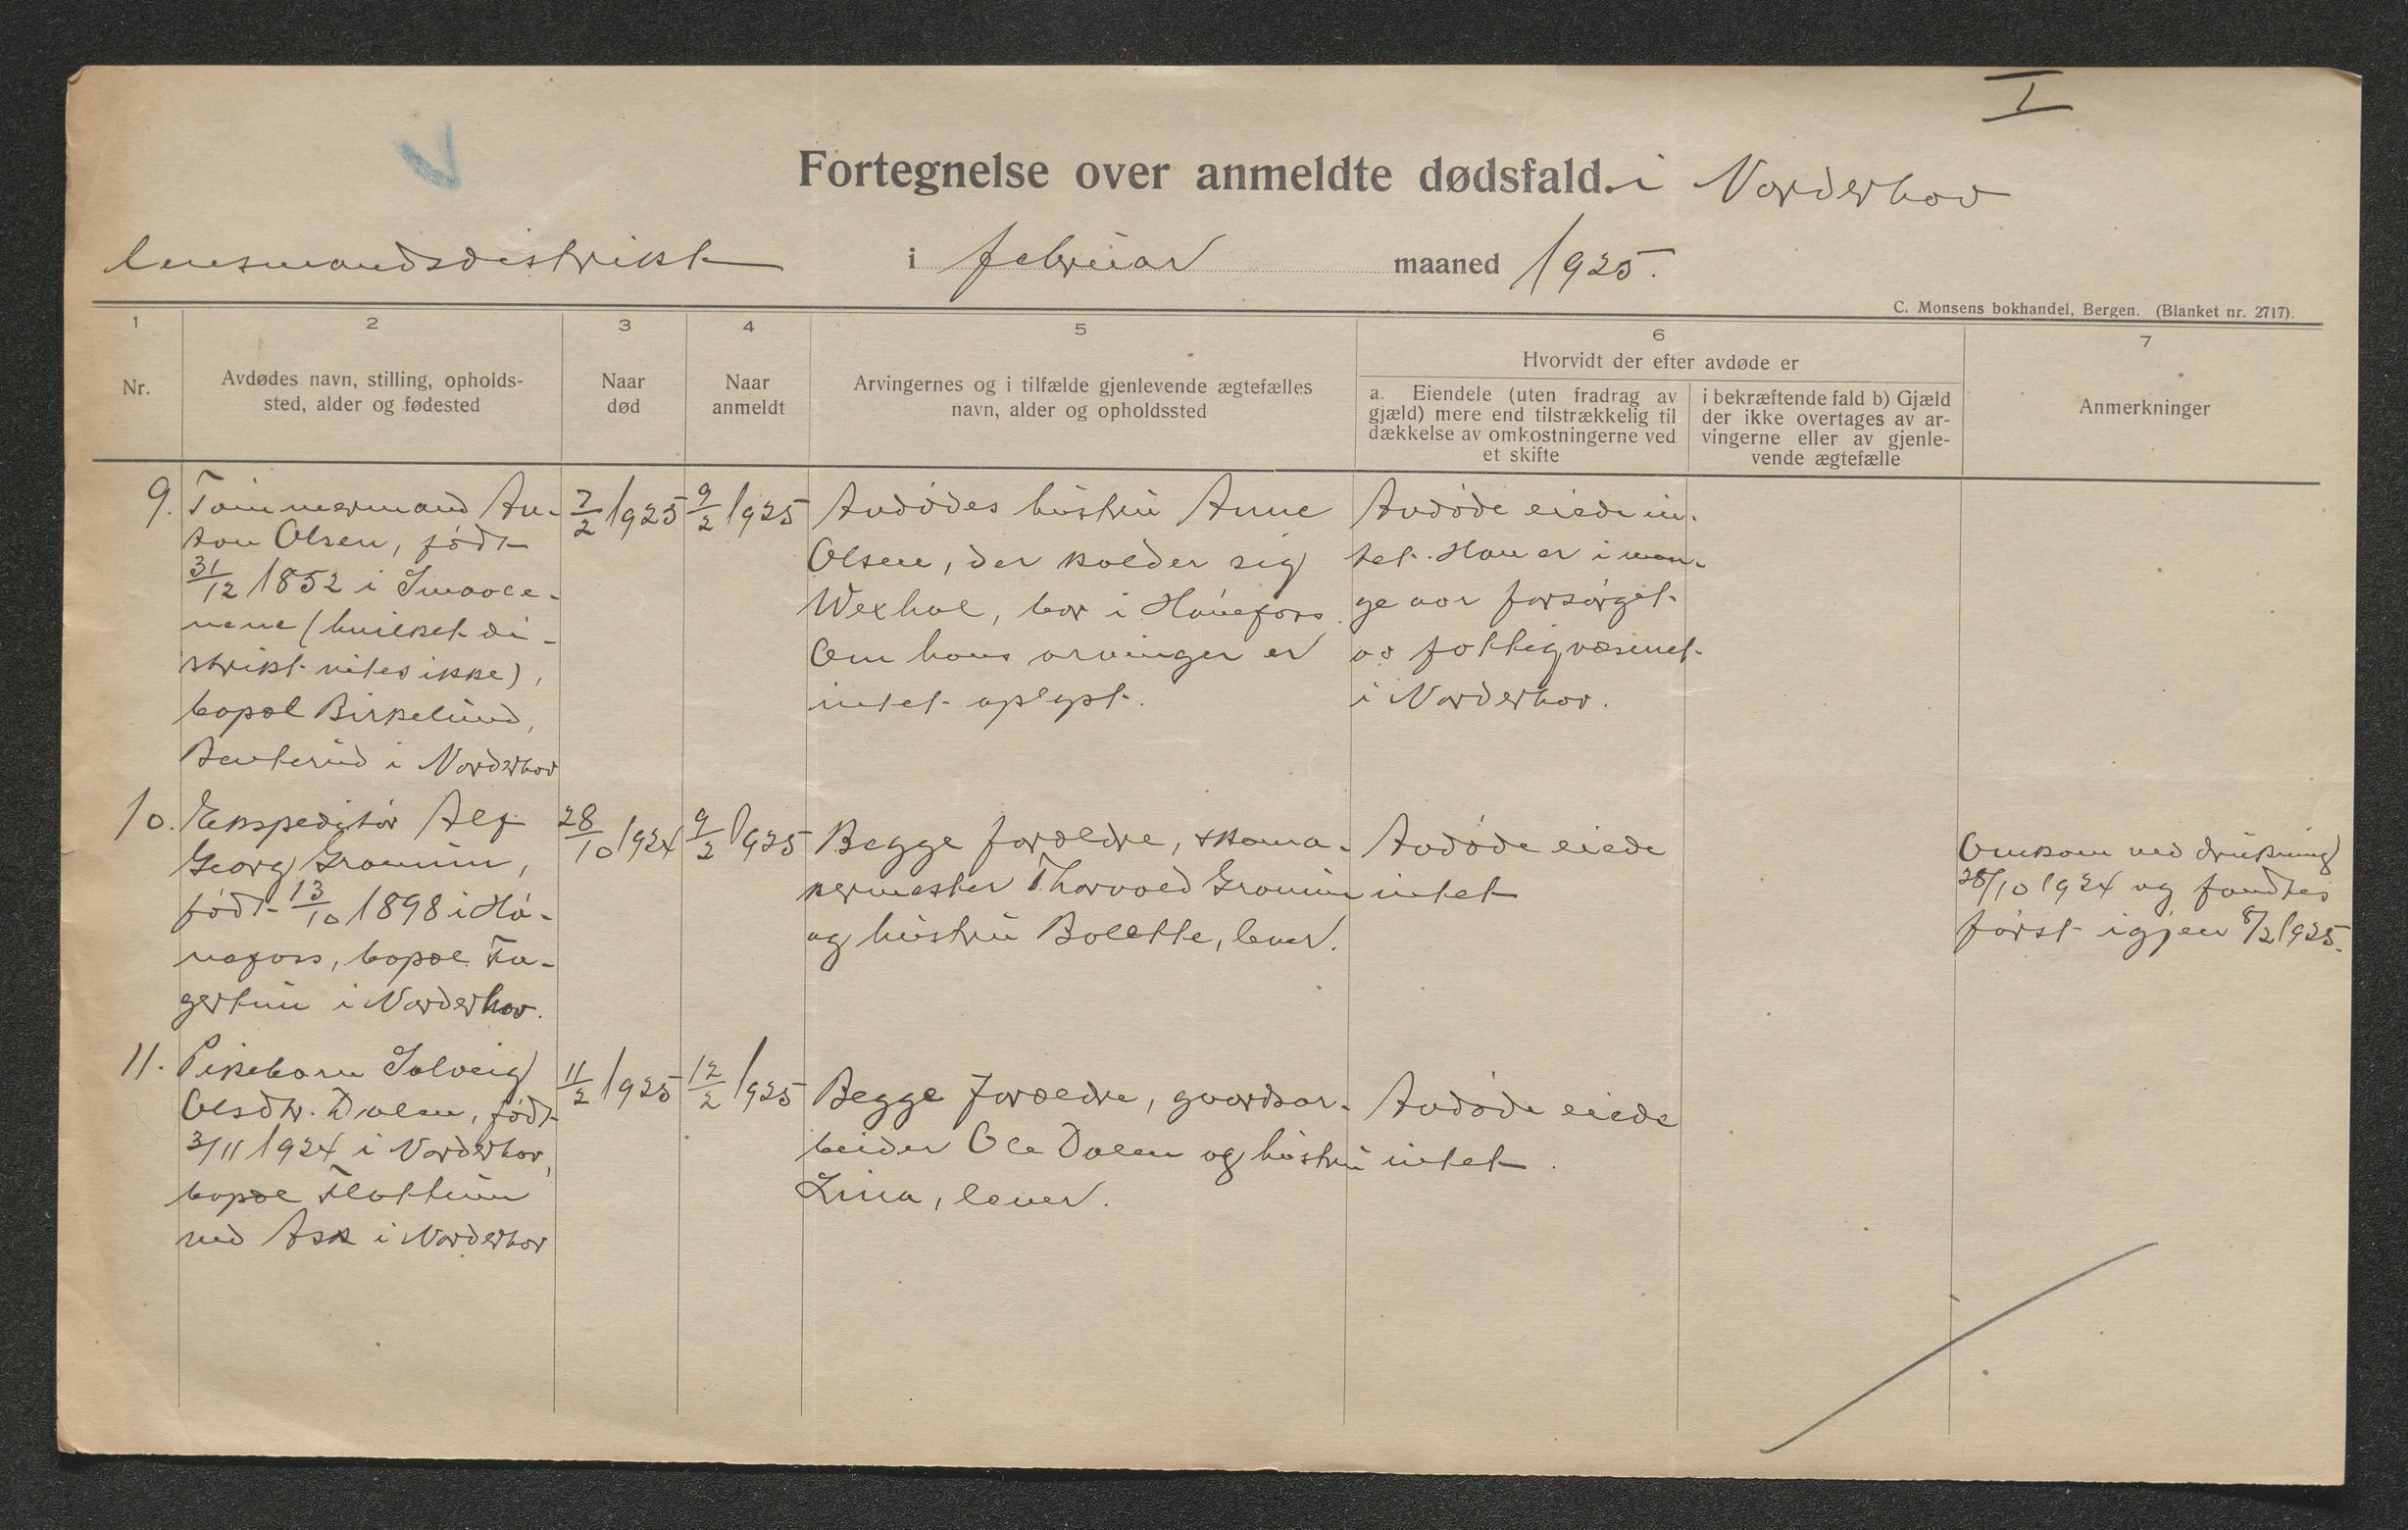 I
Fortegnelse over anmeldte dødsfald. i Norderhov
lensmandsdistrikt i februar maaned 1925.
C. Monsens bokhandel, Bergen. (Blanket nr. 2717).
1 2 3 4 5 6 7
Nr.
Avdødes navn, stilling, opholds-
sted, alder og fødested
Naar
død
Naar
anmeldt
Arvingernes og i tilfælde gjenlevende ægtefælles
navn, alder og opholdssted
Hvorvidt der efter avdøde er
a. Eiendele (uten fradrag av
gjæld) mere end tilstrækkelig til
dækkelse av omkostningerne ved
et skifte
i bekræftende fald b) Gjæld
der ikke overtages av ar-
vingerne eller av gjenle-
vende ægtefælle
Anmerkninger
9.
Tømmermand An-
ton Olsen, født
31/12 1852 i Smaale-
nene (hvilket di-
strikt vites ikke),
bopæl Birkelund,
Benterud i Norderhov
7/2 1925
9/2 1925
Avdødes hustru Anne
Olsen, der kalder sig
Wexhal, bor i Hønefoss.
Om hans arvinger er
intet oplyst.
Avdøde eiede in-
tet. Han er i man-
ge aar forsørget
av fattigvæsenet
i Norderhov.
10.
Ekspeditør Alf
Georg Gromim,
født 13/10 1898 i Hø-
nefoss, bopæl Fa-
gertun i Norderhov.
28/10 1924
9/2 1925
Begge forældre, skoma-
kermester Thorvald Gromim
og hustru Bolette, lever.
Avdøde eiede
intet
Omkom ved drukning
28/10 1924 og fandtes
først igjen 8/2 1925.
11.
Pikebarn Solveig
Olsdtr. Dalen, født
3/11 1924 i Norderhov,
bopæl Flattum
ved Ask i Norderhov
11/2 1925
12/2 1925
Begge forældre, gaardsar-
beider Ole Dalen og hustru
Lina, lever.
Avdøde eiede
intet.